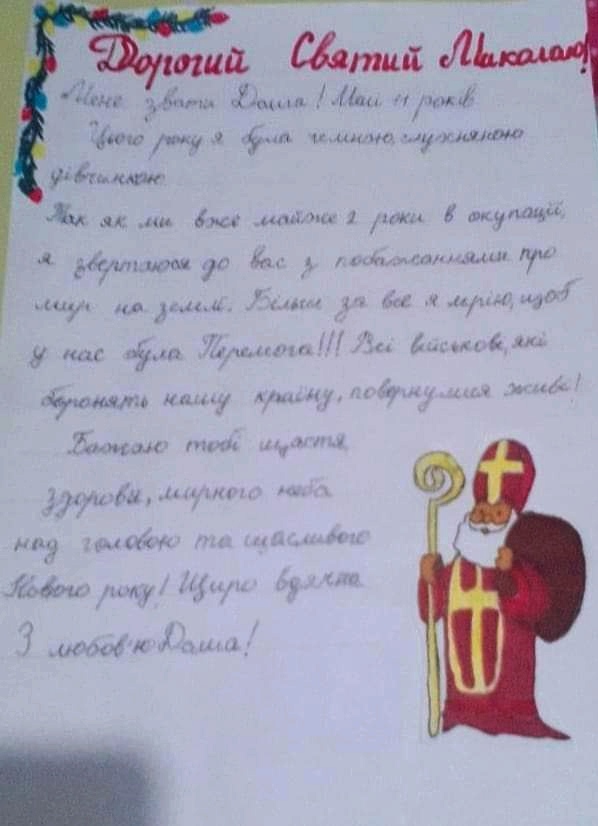 Дорогий Святий Миколаю!
Мене звати Даша! Мені 11 років
Цього року я була чемною, слухняною
дівчинкою.
Так як ми вже майже 2 роки в окупації,
я звертаюся до вас з побажаннями про
мир на землі. Більш за все я мрію, щоб
у нас була Перемога!!! Всі військові, які
боронять нашу країну, повернулися живі!
Бажаю тобі щастя,
здоровя, мирного неба
над головою та щасливого
Нового року! Щиро вдячна
З любов'ю Даша!